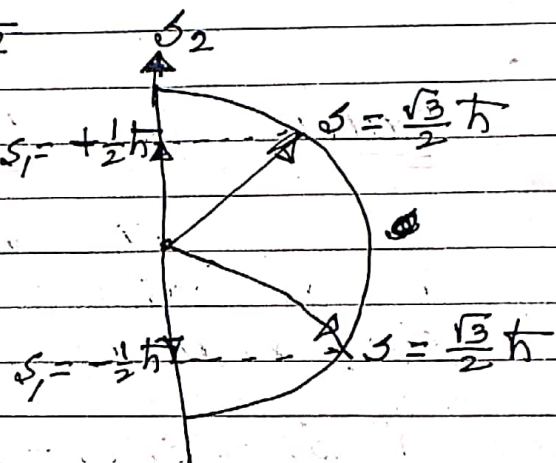 S2
S1 = +1/2 ħ
S = √3/2 ħ
S1 = -1/2 ħ
S = √3/2 ħ